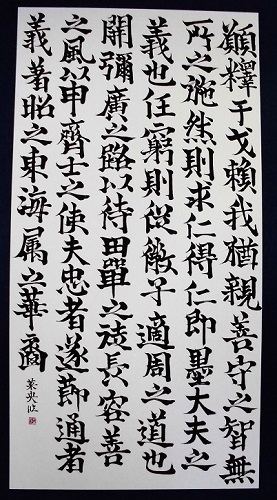 願釋干戈賴我猶親善守之智無
所之施然則求仁得仁即墨大夫之
義也任窮則從微子適周之道也
開彌廣之路以待田單之徒長容善
之風以申齊士之使夫忠者遂節通者
義著昭之東海属之華裔